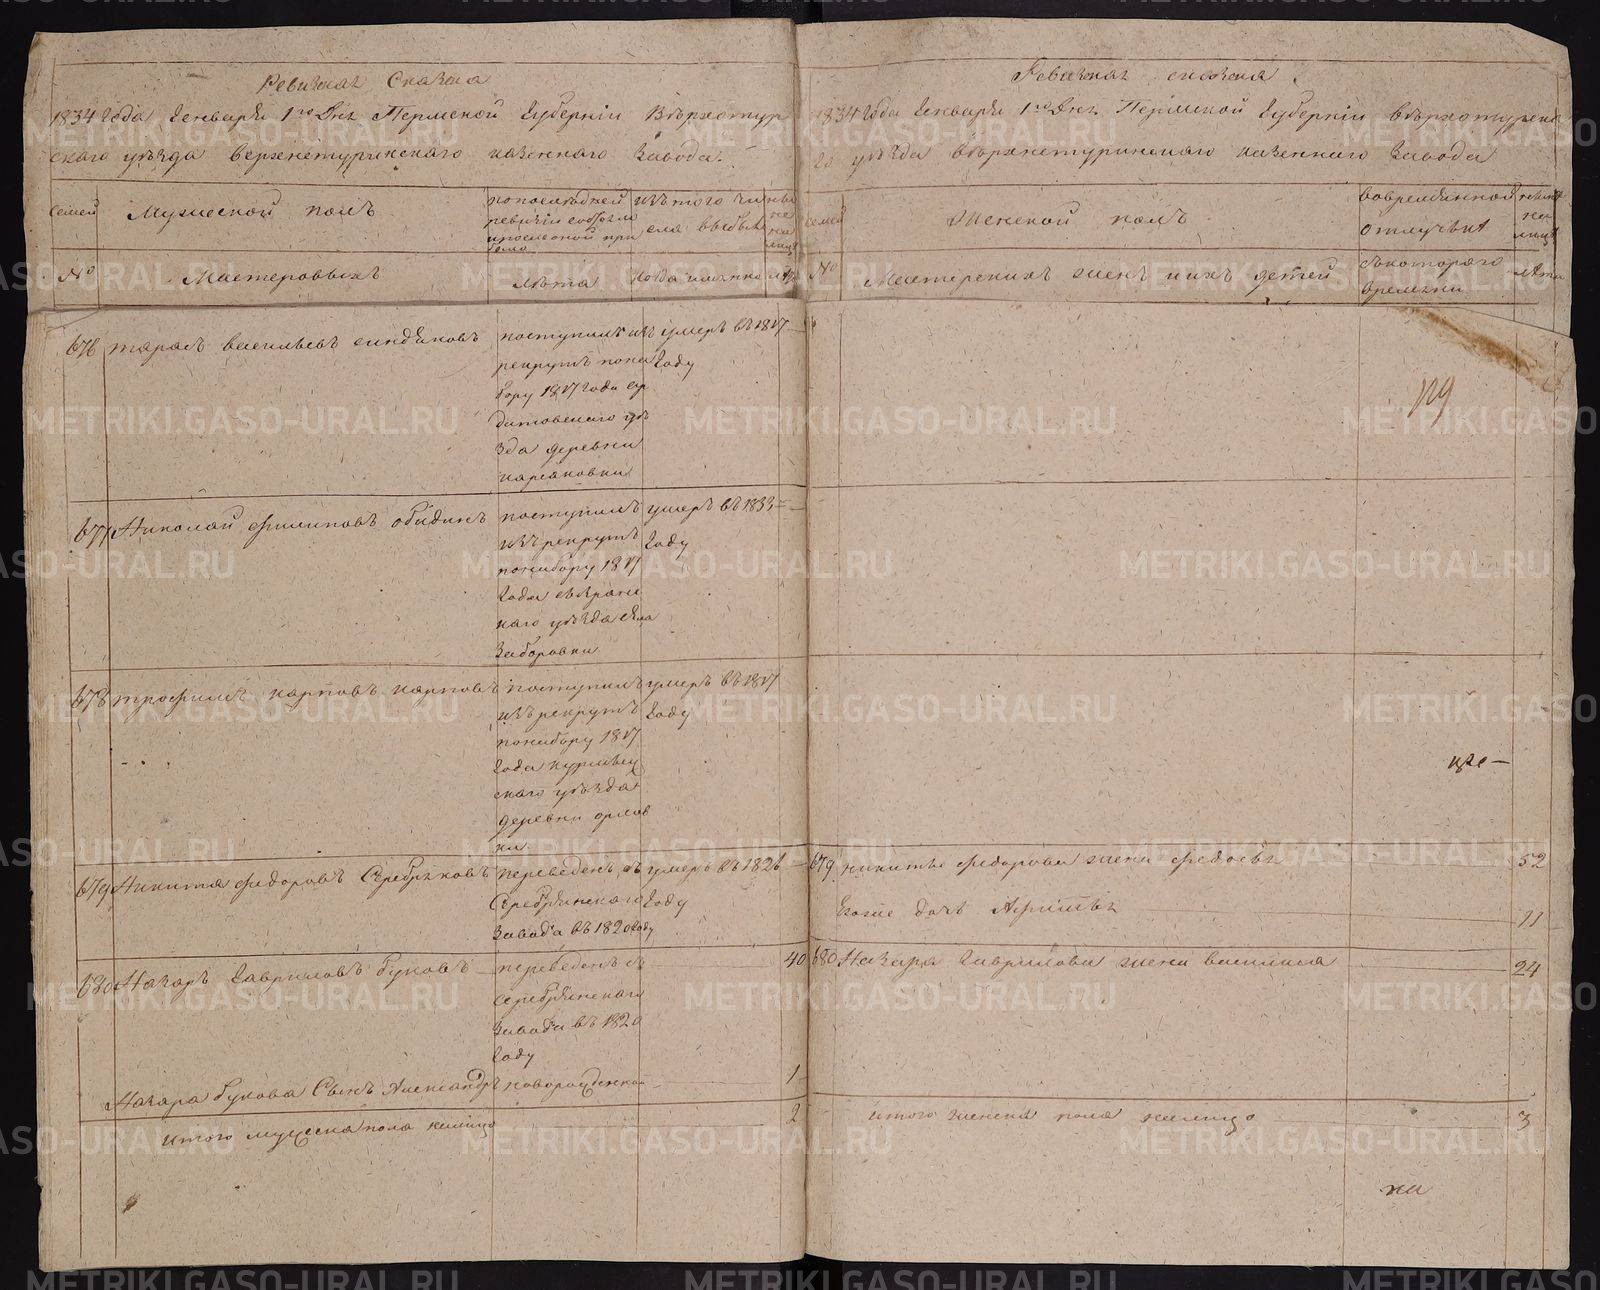 Ревизкая Сказка
1834 года Генваря 1го Дня Пермской Губернии Верхотур
скаго уезда верхнетуринскаго казеннаго Завода.
семей
Мужеской полъ
попоследней
ревизии состояло
изъ того чи
сла выбыло
ны
не
на
лицо
№
Мастеровыхъ
лета
когда имянно
лета
676 тарасъ васильевъ
поступилъ изъ
рекрутъ пона
бору 1817 года
уе
зда деревни
умеръ въ 1817
году
677 Николай филиповъ обидинъ
поступилъ
изъ рекрутъ
понабору 1817
года сызране
каго уезда села
Заборовки
умеръ въ 1833
году
678 трофимъ карповъ карповъ
поступилъ
изъ рекрутъ
понабору 1817
года курмыш
скаго уезда
деревни орлов
ки
умеръ въ 1817
году
679 Никита федоровъ Серебряковъ
переведенъ съ
Серебрянскаго
завода въ 1820 году
умеръ въ 1826
году
680 Назаръ Гавриловъ буковъ
переведенъ съ
серебрянскаго
завода въ 1820
году
40
Назара букова Сынъ Александръ новорожденной 1
итого мужеска пола налицо 2
Ревизкая сказка.
1834 года Генваря 1го Дня Пермской Губернии верхотурска
го уезда верхнетуринскаго казеннаго завода
семей
Женской полъ
вовременной
отлучке
ныне
на
лицо
№
Мастерскихъ женъ и ихъ детей
съкотораго
времени
лета
679 никиты федорова жена федосья 52
Егоже дочь 11
680 Назара Гаврилова жена василиса 24
итого женска пола налицо 3
METRIKI.GASO-URAL.RU